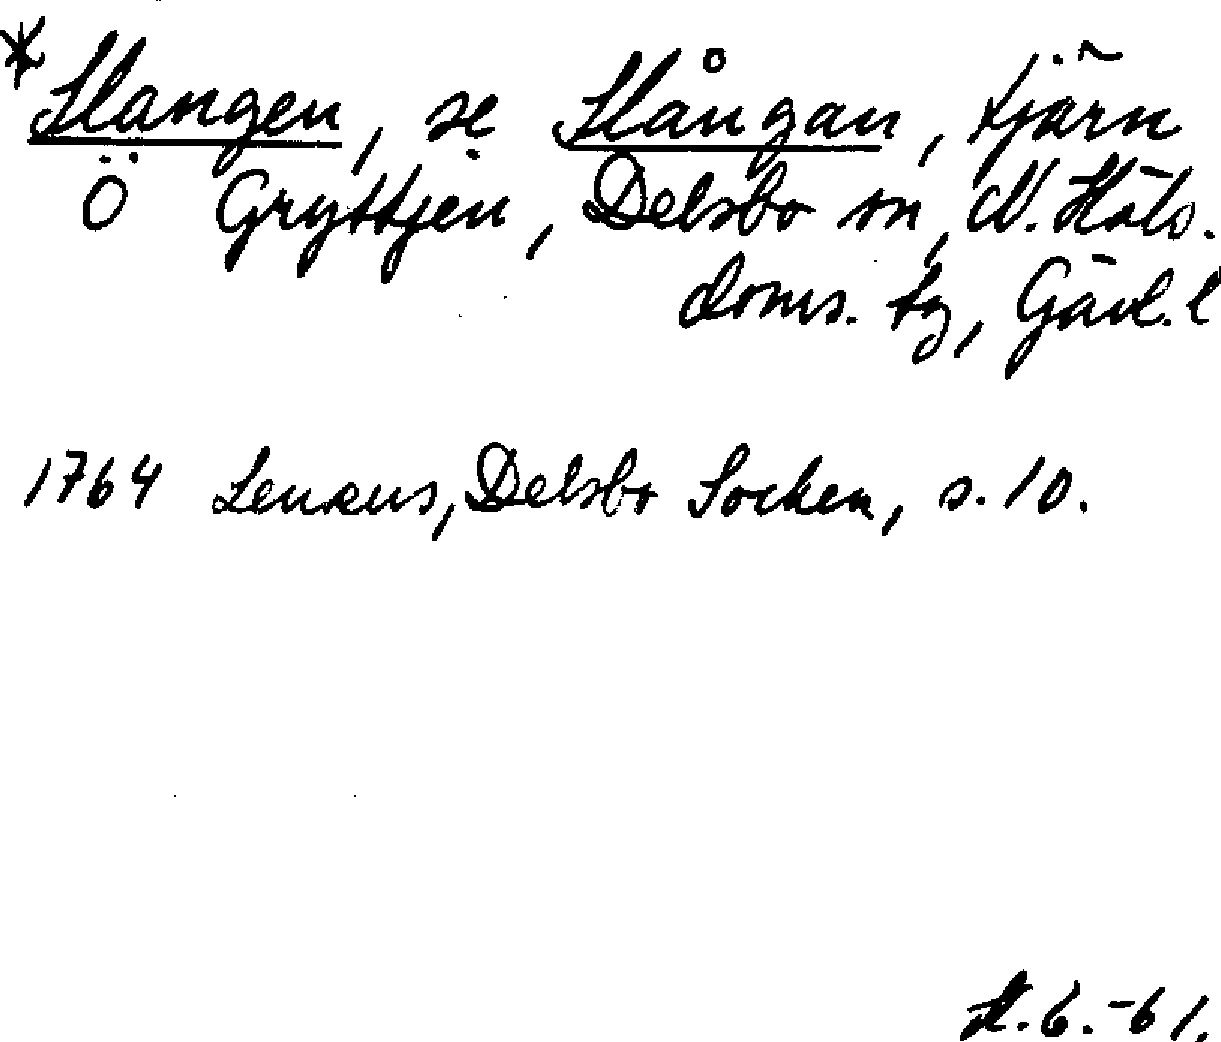 *Slangen, se Slångan, tjärn
Ö Gryttjen, Delsbo sn, N. Häls.
doms. tg, Gävl. l
1764 Lenæus, Delsbo Socken, s. 10.
6.-61.